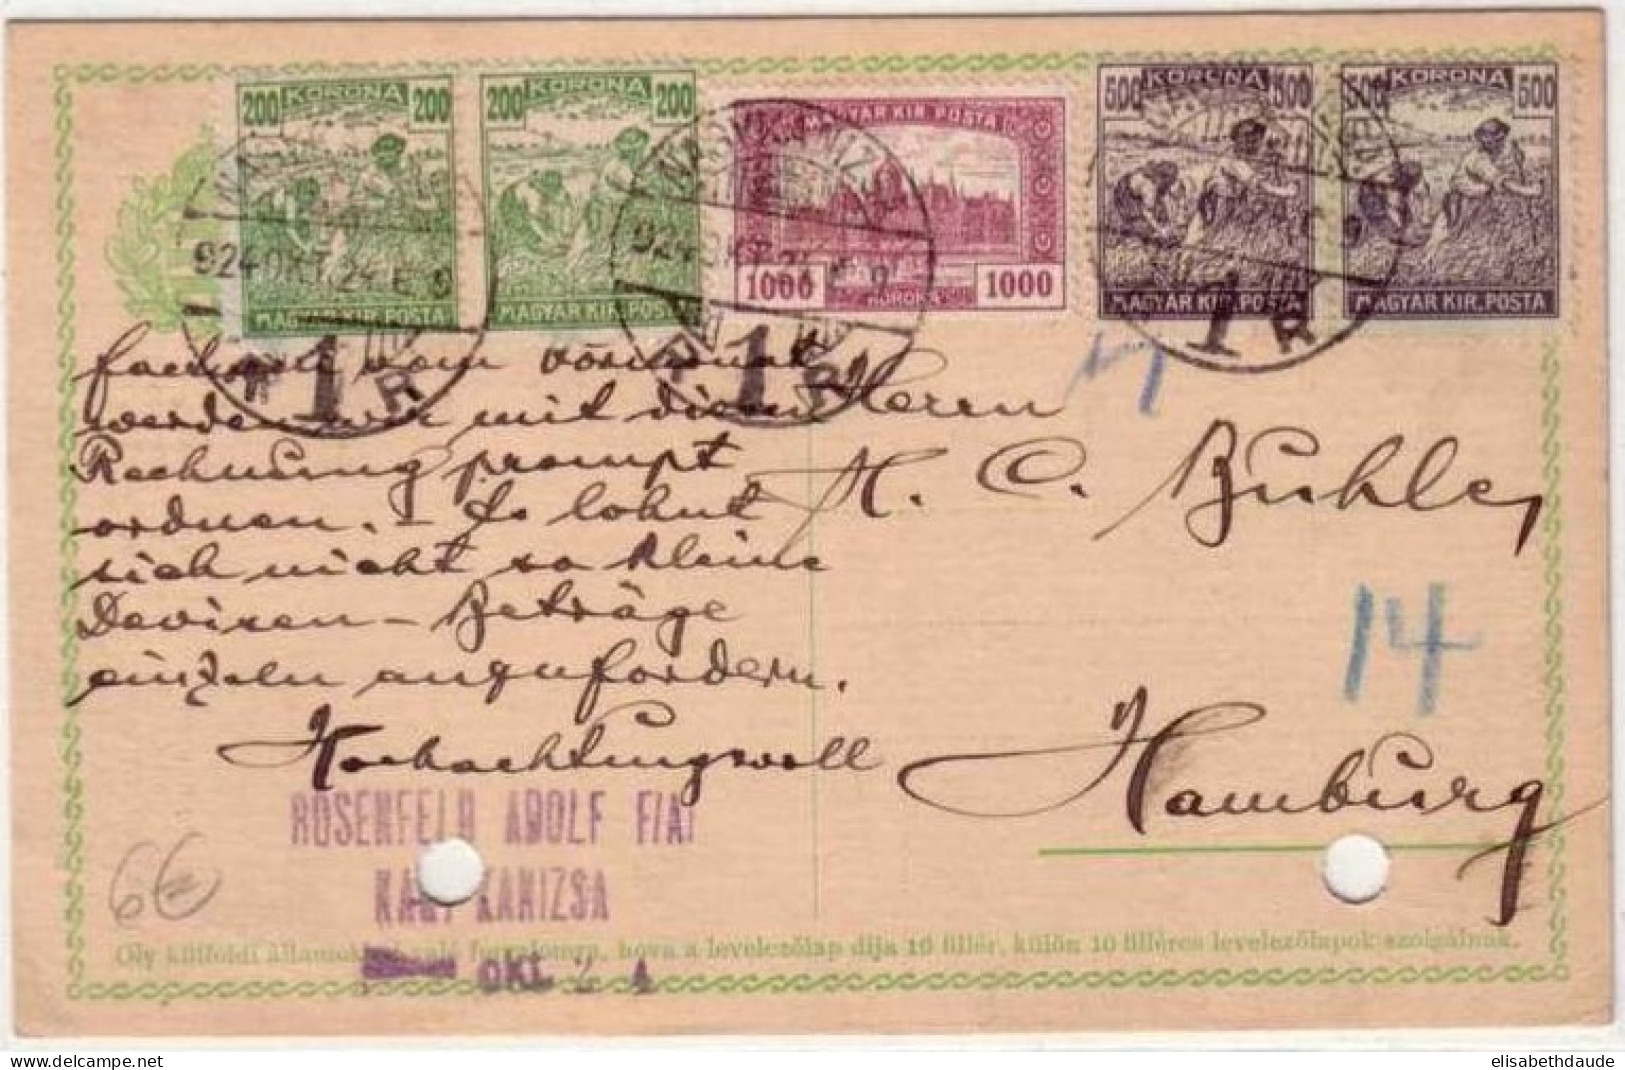 200 KORONA 200
MAGYAR KIR. POSTA
200 KORONA 200
MAGYAR KIR. POSTA
MAGYAR KIR. POSTA
1000 KORONA 1000
500 KORONA 500
MAGYAR KIR. POSTA
500 KORONA 500
MAGYAR KIR. POSTA
924 OKT. 24 E. 9
1 R
924 OKT 24 E 9
1 R
1 R
vom
werden wir mit dieser
Rechnung prompt
ordnen. – Es lohnt
sich nicht so kleine
Devisen – Beträge
einzeln anzufordern.
Hochachtungsvoll
Herrn
H. C. Buhle,
14
Hamburg
ROSENFELD ADOLF FIAI
NAGY KANIZSA
OKT. 2 4
6€
Oly külföldi államok való forgalomra, hova a levelezőlap díja 10 fillér, külön 10 filléres levelezőlapok szolgálnak.
elisabethdaude